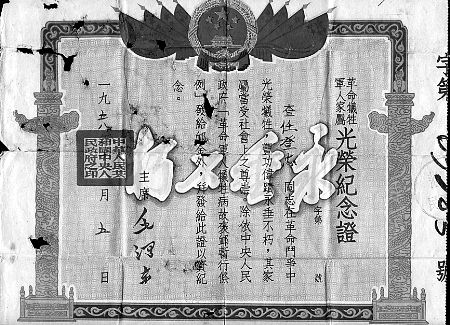 字第
號
革命犧牲
軍人家屬
光榮紀念證
字第
號
查任同志在革命鬥爭中
光榮犧牲,豐功偉績永垂不朽,其家
屬當受社會上之尊崇。除依中央人民
政府「革命軍人犧牲病故褒卹暫行條
例」發給卹金外,并發給此證以資紀
念。
永垂不朽
主席 毛澤東
一九五 月五日
中華人民共
和國中央人
民政府之印